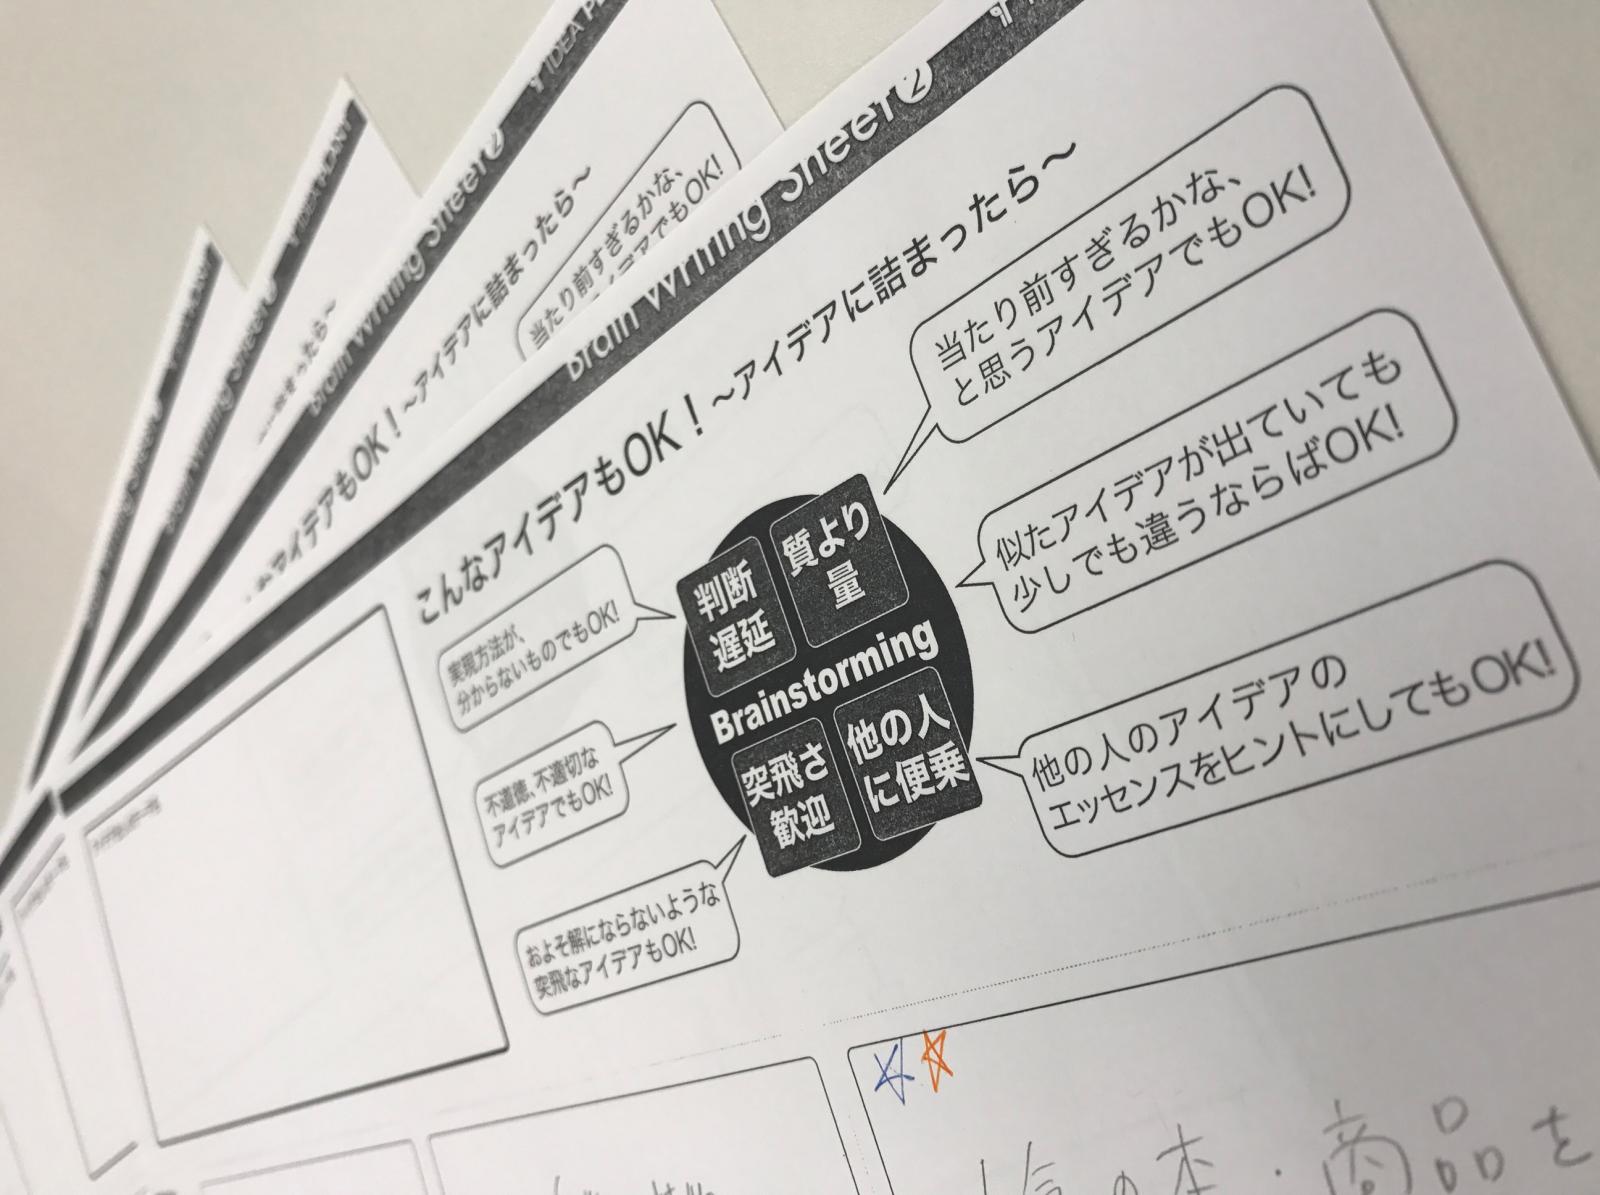 Brain Writing Sheet②
こんなアイデアもOK！～アイデアに詰まったら～
実現方法が、
分からないものでもOK!
不道徳、不適切な
アイデアでもOK!
およそ解にならないような
突飛なアイデアもOK!
判断
遅延
質より
量
Brainstorming
突飛さ
歓迎
他の人
に便乗
当たり前すぎるかな、
と思うアイデアでもOK!
似たアイデアが出ていても
少しでも違うならばOK!
他の人のアイデアの
エッセンスをヒントにしてもOK!
の本・商品を
Brain Writing Sheet②
IDEA PL
アイデアもOK！～アイデアに詰まったら～
当たり前すぎるかな、
アイデアでもOK!